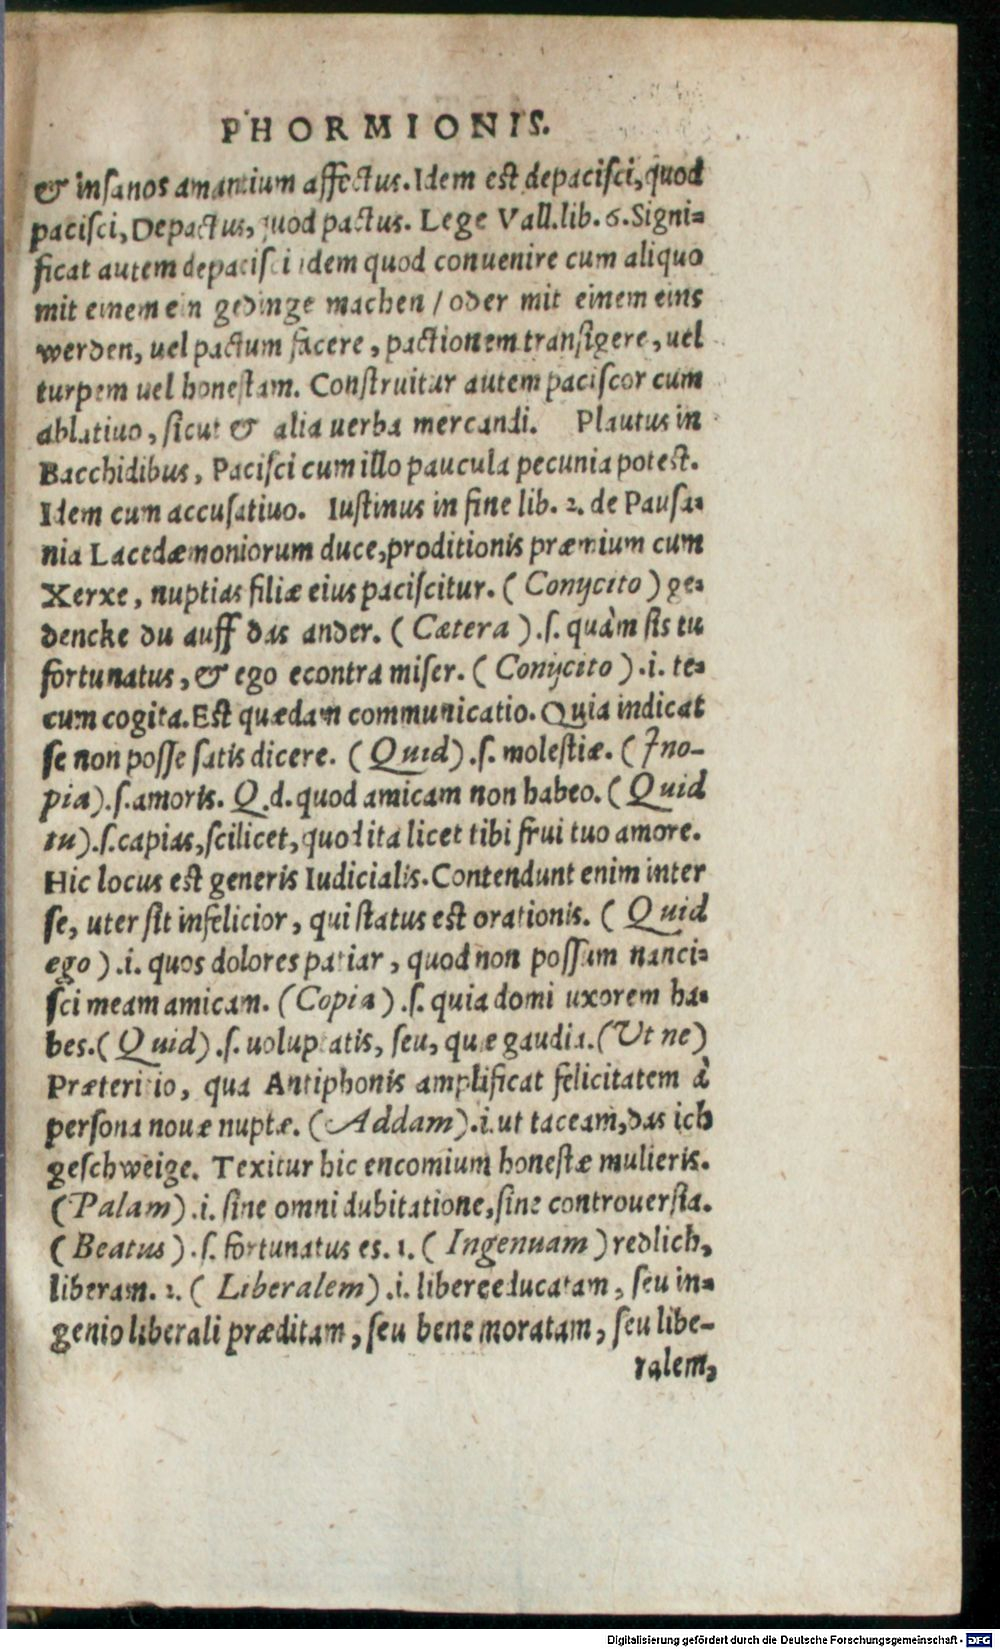 PHORMIONIS.
& insanos amantium affectus. Idem est depacisci, quod
pacisci, Depactus, quod pactus. Lege Vall. lib. 6. Signi-
ficat autem depacisci idem quod conuenire cum aliquo
mit einem ein gedinge machen / oder mit einem eins
werden, uel pactum facere, pactionem transigere, uel
turpem uel honestam. Construitur autem paciscor cum
ablatiuo, sicut & alia uerba mercandi. Plautus in
Bacchidibus, Pacisci cum illo paucula pecunia potest.
Idem cum accusatiuo. Iustinus in fine lib. 2. de Pausa-
nia Lacedæmoniorum duce, proditionis præmium cum
Xerxe, nuptias filiæ eius paciscitur. (Conijcito) ge-
dencke du auff das ander. (Cætera) .s. quàm sis tu
fortunatus, & ego econtra miser. (Conijcito) .i. te-
cum cogita. Est quædam communicatio. Quia indicat
se non posse satis dicere. (Quid) .s. molestiæ. (Ino-
pia) .s. amoris. Q.d. quod amicam non habeo. (Quid
tu) .s. capias, scilicet, quod ita licet tibi frui tuo amore.
Hic locus est generis Iudicialis. Contendunt enim inter
se, uter sit infelicior, qui status est orationis. (Quid
ego) .i. quos dolores patiar, quod non possum nanci-
sci meam amicam. (Copia) .s. quia domi uxorem ha-
bes. (Quid) .s. uoluptatis, seu, quæ gaudia. (Ut ne)
Præteritio, qua Antiphonis amplificat felicitatem à
persona nouæ nuptæ. (Addam) .i. ut taceam, das ich
geschweige. Texitur hic encomium honestæ mulieris.
(Palam) .i. sine omni dubitatione, sine controuersia.
(Beatus) .s. fortunatus es. 1. (Ingenuam) redlich,
liberam. 2. (Liberalem) .i. libere educatam, seu in-
genio liberali præditam, seu bene moratam, seu libe-
ralem,
Digitalisierung gefördert durch die Deutsche Forschungsgemeinschaft - DFG